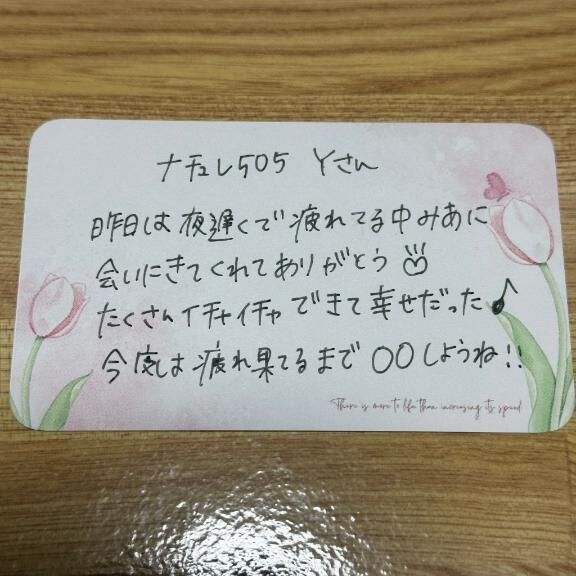 ナチュレ505 Yさん
昨日は夜遅くで疲れてる中みあに
会いにきてくれてありがとう
たくさんイチャイチャできて幸せだった♪
今度は疲れ果てるまで〇〇しようね!!
There is more to life than increasing its speed.